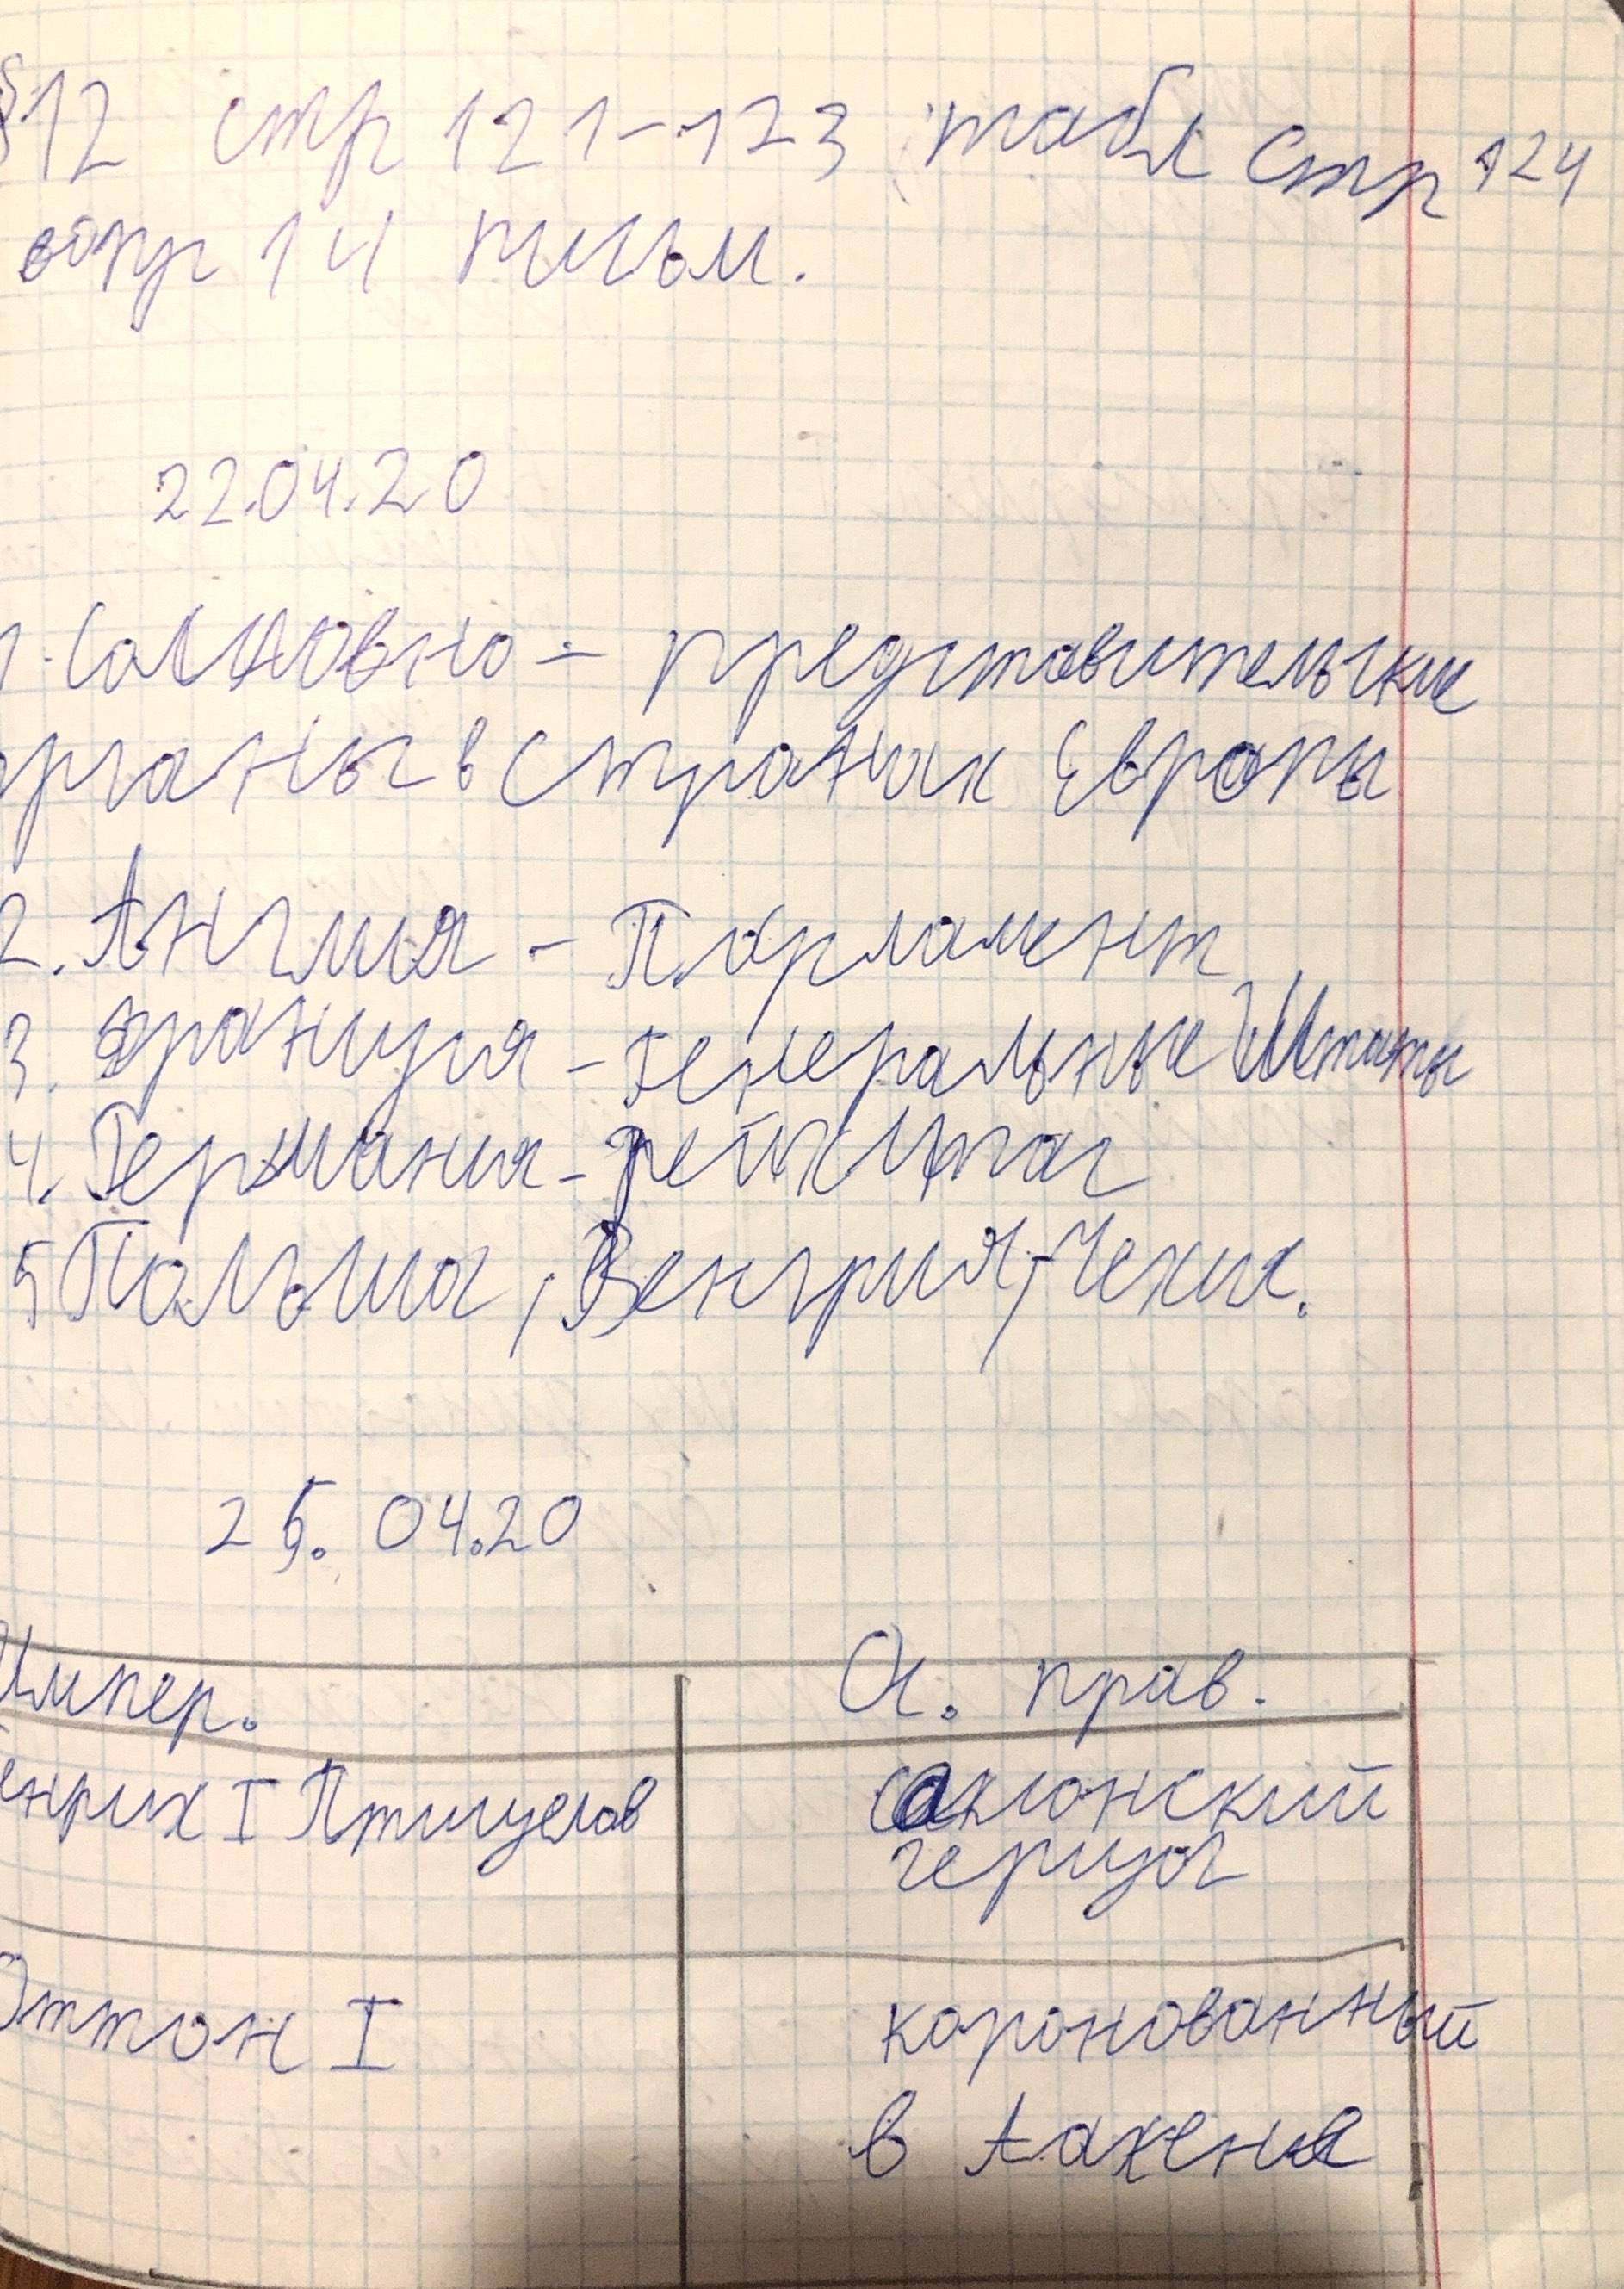 §12 стр 121-123 табл стр 124
вопр 14 письм.
22.04.20
1. Сословно - представительские
органы в странах Европы
2. Англия - Парламент
3. Франция - Генеральные Штаты
4. Германия - рейхстаг
5 Польша, Венгрия, Чехия.
25. 04.20
Импер. О. прав.
Генрих I Птицелов саксонский
герцог
Оттон I коронованный
в Аахене